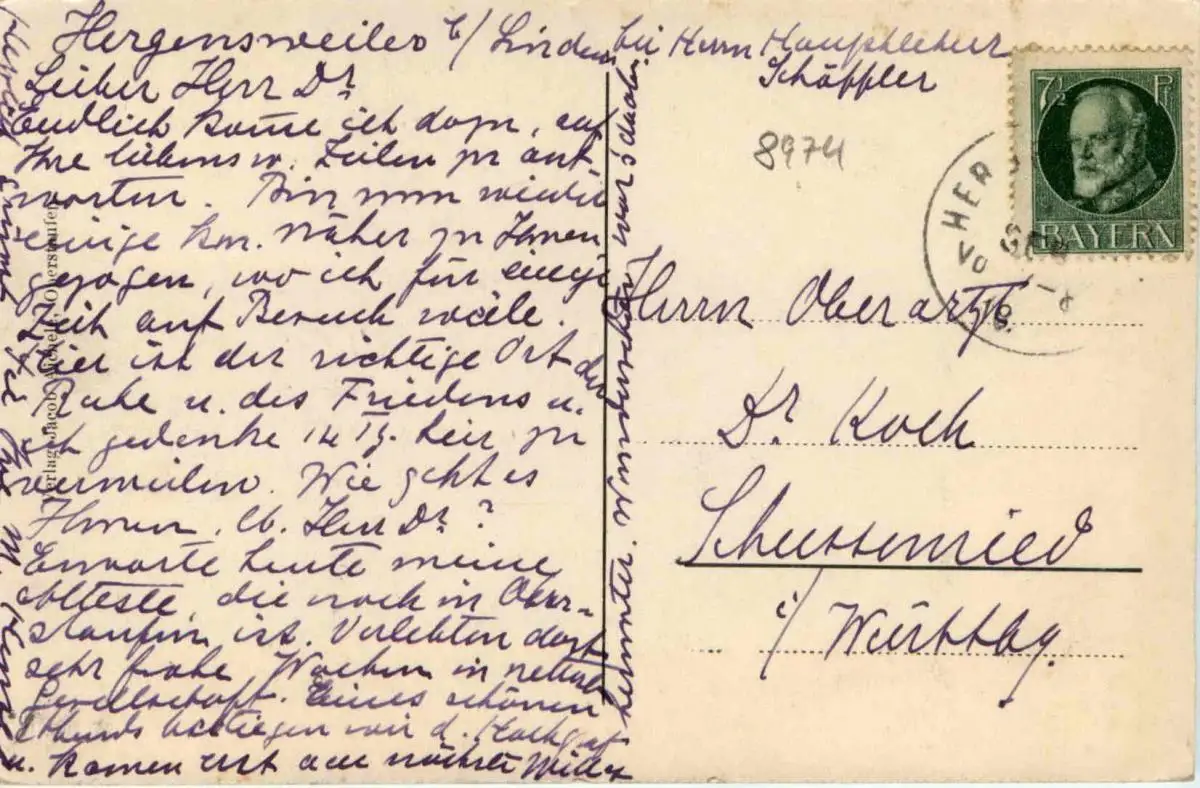 Hergensweiler b/ Lindau bei Herrn Hauptlehrer
Schöffler
Lieber Herr Dr.
Endlich komme ich dazu, auf
Ihre liebensw. Zeilen zu ant-
worten. Bin nun wieder
einige km. näher zu Ihnen
gezogen, wo ich für einige
Zeit auf Besuch weile.
Hier ist der richtige Ort der
Ruhe u. des Friedens u.
ich gedenke 14 Tg. hier zu
verweilen. Wie geht es
Ihnen, lb. Herr Dr?
Erwarte heute meine
Älteste, die noch in Ober-
staufen ist. Verlebten dort
sehr frohe Wochen in netter
Gesellschaft. Eines schönen
Abends bestiegen wir d. Hochgrat
u. kamen erst am nächsten Mittag
herunter. Wunderschön war's dabei
Herzl.
Verlag Jacob Aichele, Oberstaufen
8974
7½ Pf
BAYERN
HER
Herrn Oberarzt
Dr. Koch
Schussenried
i/ Württbg.